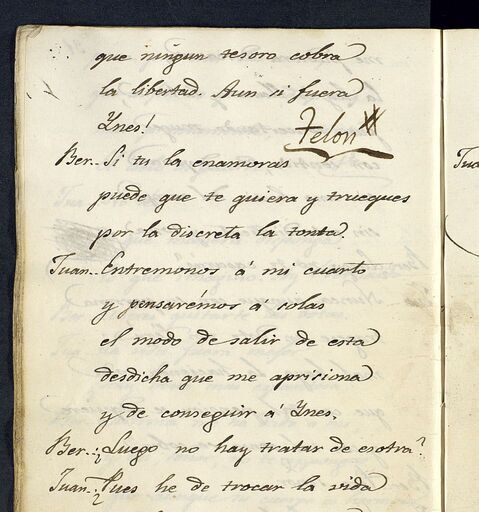 que ningun tesoro cobra
la libertad. Aun si fuera
Ynes!
Telon
Ber.. Si tu la enamoras
puede que te quiera y trueques
por la discreta la tonta.
Juan.. Entremonos á mi cuarto
y pensarémos á solas
el modo de salir de esta
desdicha que me aprisiona
y de conseguir á Ynes.
Ber.. ¿Luego no hay tratar de esotra?
Juan.. ¿Pues he de trocar la vida